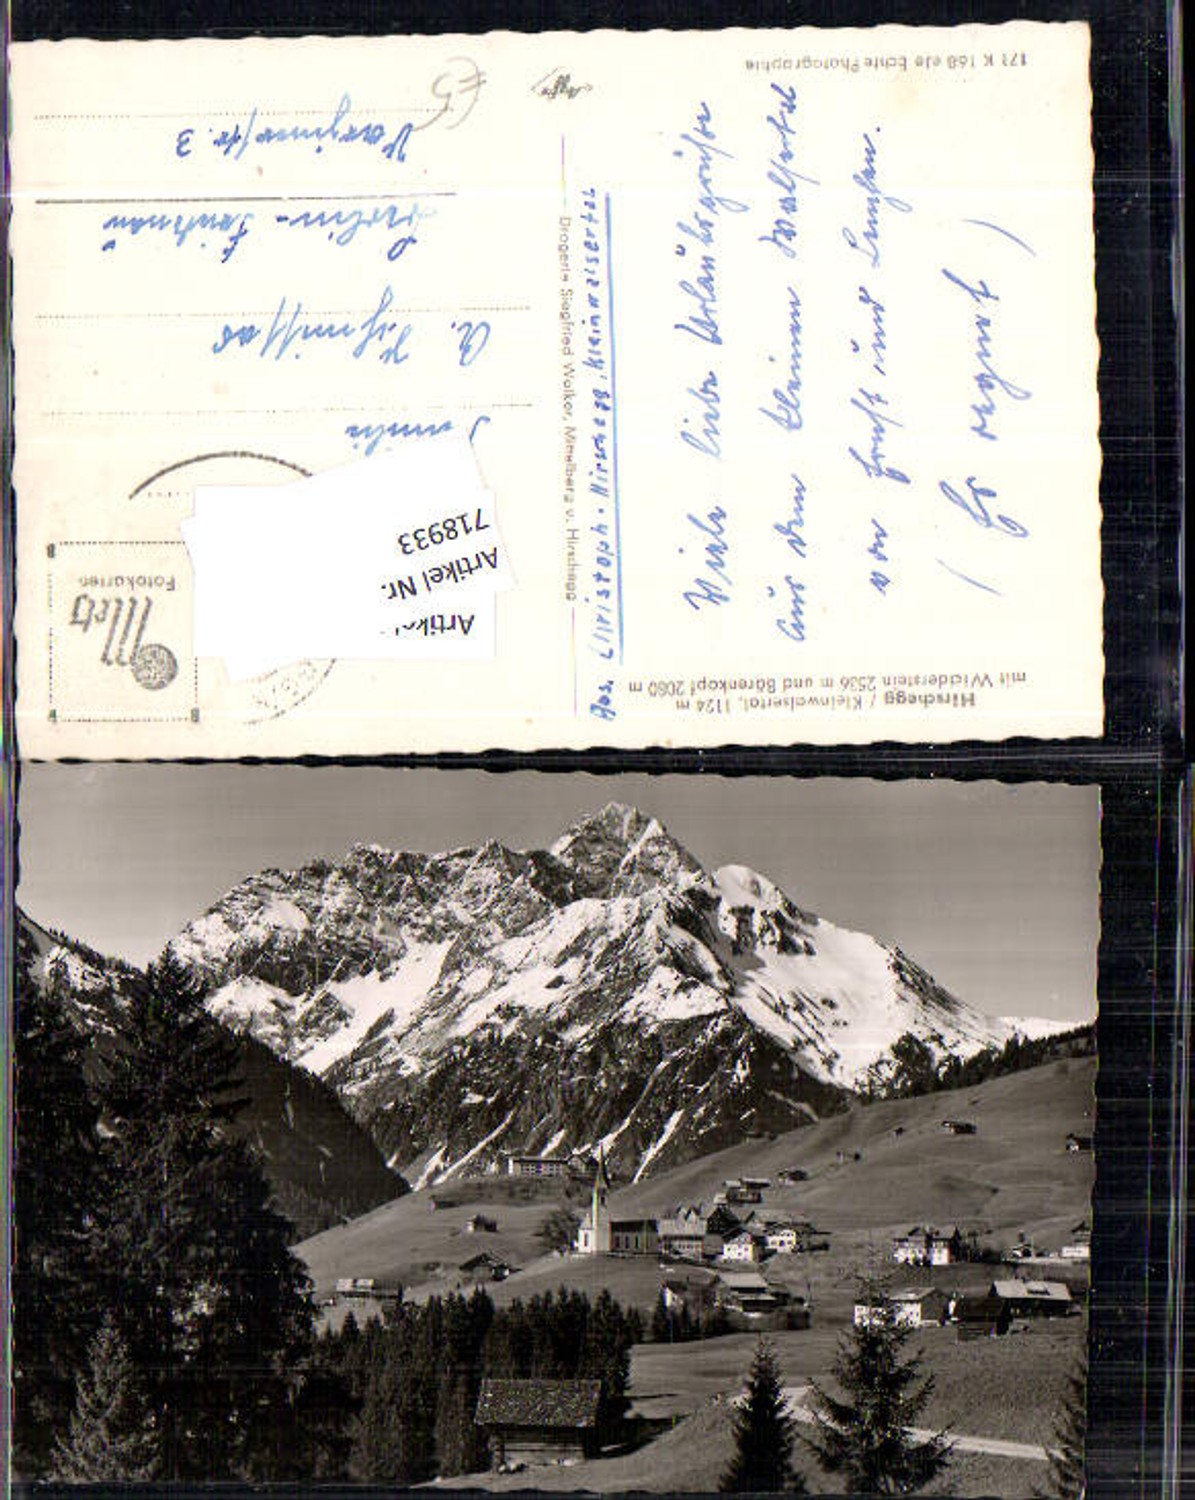 Hirschegg / Kleinwalsertal, 1124 m
mit Widderstein 2536 m und Bärenkopf 2080 m
Viele liebe Urlaubsgrüße
aus dem kleinen Walsertal
von Ernst und
(Es regnet)
171 K 168 ele Echte Photographie
Abs. Christoph. Hirschegg, Kleinwalsertal
Drogerie Siegfried Walker, Mittelberg u. Hirschegg
Agfa
Metz
Fotokarten
Artikel Nr.
718933
Familie
A.
Berlin-
3